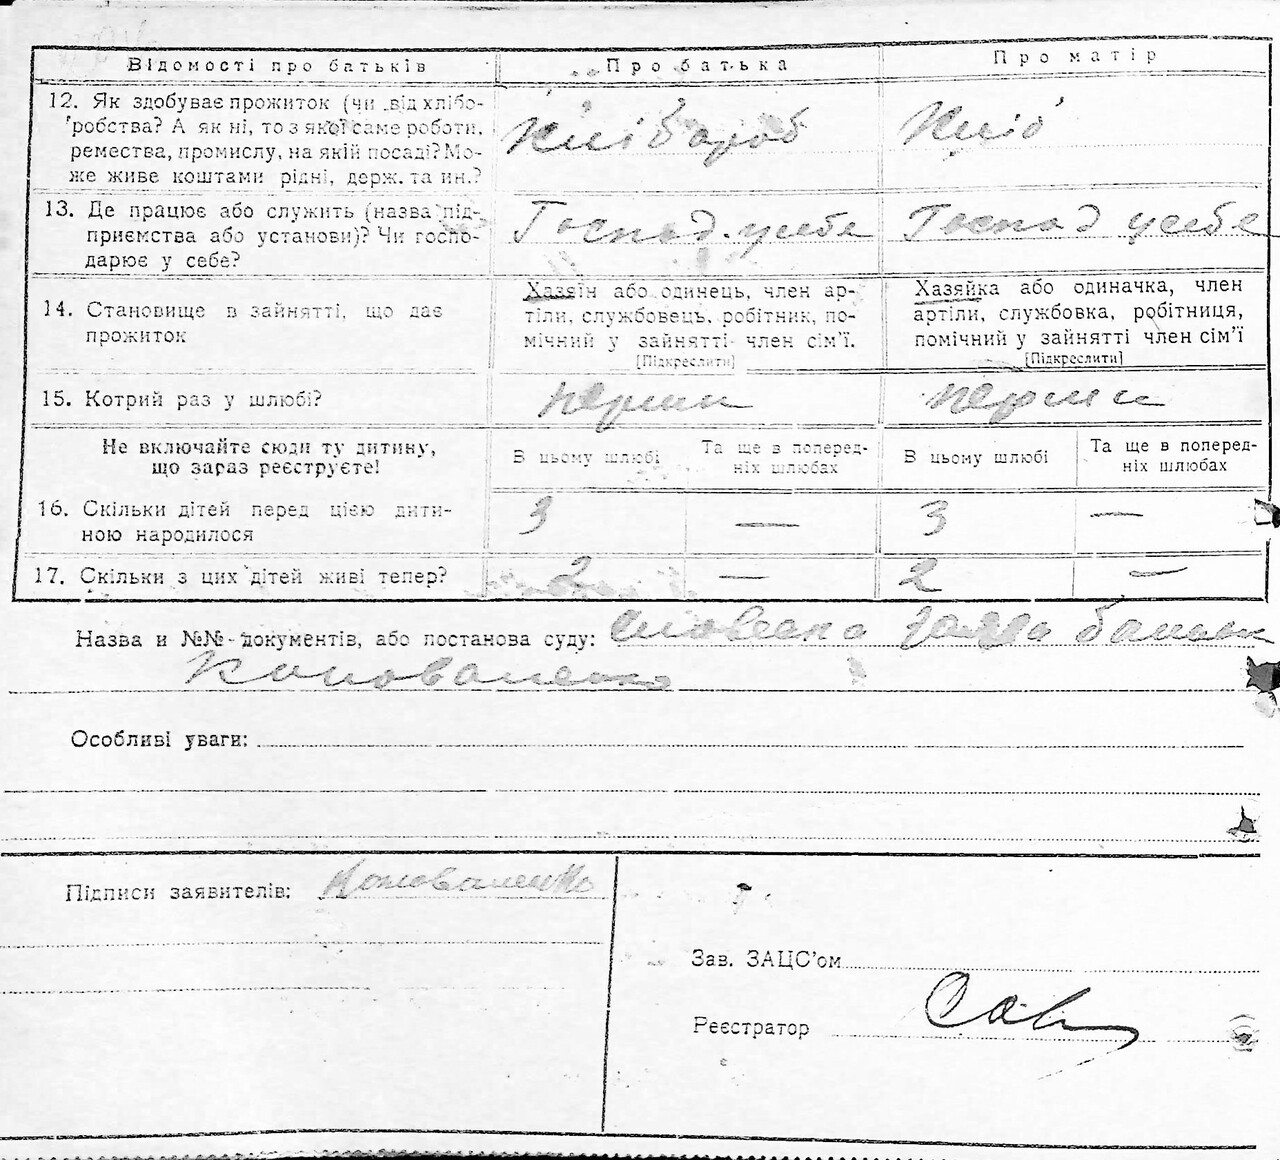 Відомості про батьків Про батька Про матір
12. Як здобуває прожиток (чи від хлібо-
робства? А як ні, то з якої саме роботи,
ремества, промислу, на якій посаді? Мо-
же живе коштами рідні, держ. та ин.?
Хлібороб Хліб
13. Де працює або служить (назва під-
приємства або установи)? Чи госпо-
дарює у себе?
Господ. у себе Господ у себе
14. Становище в зайнятті, що дає
прожиток
Хазяїн або одинець, член ар-
тіли, службовець, робітник, по-
мічний у зайнятті член сім’ї.
[Підкреслити]
Хазяйка або одиначка, член
артіли, службовка, робітниця,
помічний у зайнятті член сім’ї
[Підкреслити]
15. Котрий раз у шлюбі?
Не включайте сюди ту дитину,
що зараз реєструєте!
В цьому шлюбі
Та ще в поперед-
ніх шлюбах
В цьому шлюбі
Та ще в поперед-
ніх шлюбах
16. Скільки дітей перед цією дити-
ною народилося
3 — 3 —
17. Скільки з цих дітей живі тепер? 2 — 2 —
Назва и №№ документів, або постанова суду: Словесна заява батька
Коноваленко
Особливі уваги:
Підписи заявителів: Коноваленко
Зав. ЗАЦС’ом
Реєстратор